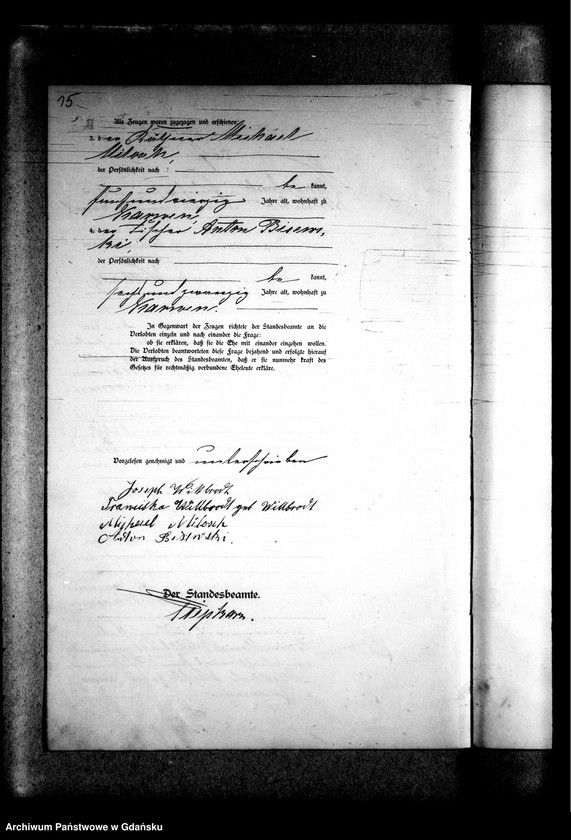 15.
Als Zeugen waren zugezogen und erschienen:
3. der Michael
der Persönlichkeit nach
be kannt,
fünfundvierzig Jahre alt, wohnhaft zu
Karwen,
4. der Fischer Anton Bisews-
ki,
der Persönlichkeit nach
be kannt,
sechsundzwanzig Jahre alt, wohnhaft zu
Karwen.
In Gegenwart der Zeugen richtete der Standesbeamte an die
Verlobten einzeln und nach einander die Frage:
ob sie erklären, daß sie die Ehe mit einander eingehen wollen.
Die Verlobten beantworteten diese Frage bejahend und erfolgte hierauf
der Ausspruch des Standesbeamten, daß er sie nunmehr kraft des
Gesetzes für rechtmäßig verbundene Eheleute erkläre.
Vorgelesen genehmigt und unterschrieben
Joseph Willbrodt
Franciska Willbrodt geb Willbrodt
Milosch
Anton
Der Standesbeamte.
Archiwum Państwowe w Gdańsku